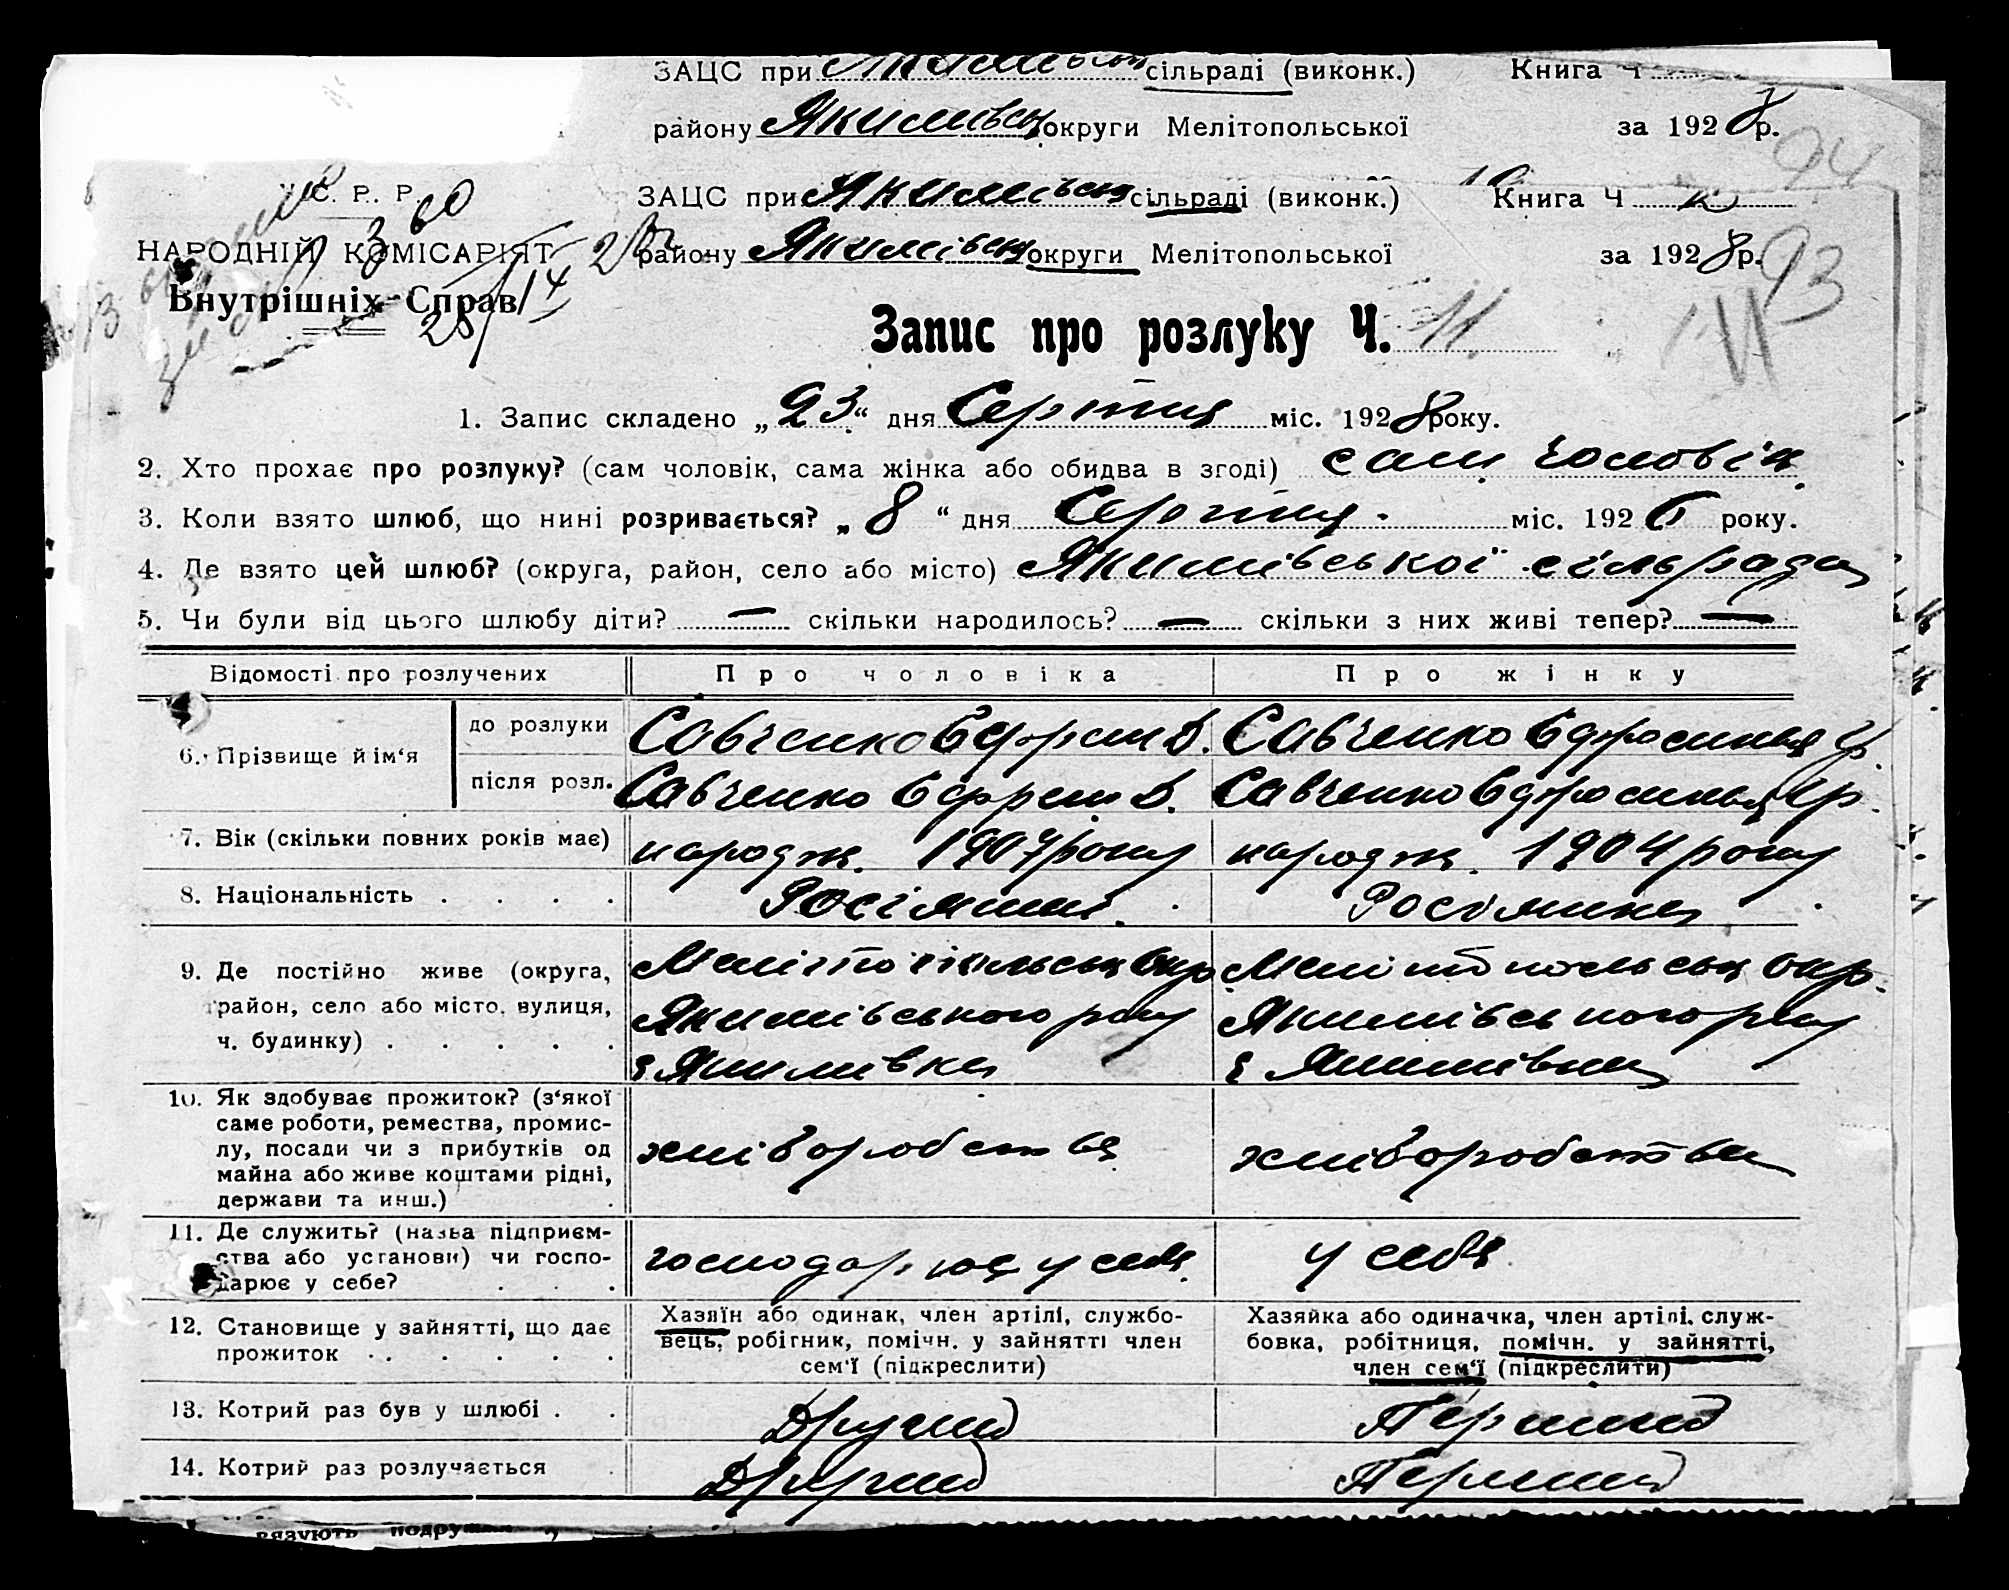 ЗАЦС при Якимівск сільраді (виконк.) Книга Ч
району Якимівск округи Мелітопольської за 1928 р.
94
У. С. Р. Р. ЗАЦС при Якимівск сільраді (виконк.) Книга Ч
НАРОДНІЙ КОМІСАРІЯТ району Якимівск округи Мелітопольської за 1928 р. 93
Внутрішніх Справ
Запис про розлуку Ч. 11
1. Запис складено „23“ дня Серпня міс. 1928 року.
2. Хто прохає про розлуку? (сам чоловік, сама жінка або обидва в згоді) сам чоловік
3. Коли взято шлюб, що нині розривається? „8“ дня Серпня міс. 192 року.
4. Де взято цей шлюб? (округа, район, село або місто) Якимівської сільрада
5. Чи були від цього шлюбу діти? — скільки народилось? — скільки з них живі тепер? —
Відомості про розлучених Про чоловіка Про жінку
6. Прізвище й ім‘я до розлуки Савченко Ефрем Д. Савченко Ефросинья Гр.
після розл. Савченко Ефрем Д. Савченко Ефросинья Гр.
7. Вік (скільки повних років має) народж. 1907 року народж. 1904 року
8. Національність Росіянин Росіянка
9. Де постійно живе (округа, Мелітопільськ Окр. Мелітопольськ Окр.
район, село або місто, вулиця, Якимівського р-ну Якимівського р-ну
ч. будинку) с Якимівка с Якимівка
10. Як здобуває прожиток? (з‘якої
саме роботи, ремества, промис-
лу, посади чи з прибутків од хліборобства хліборобства
майна або живе коштами рідні,
держави та инш.)
11. Де служить? (назва підприєм-
ства або установи) чи госпо- господарює у себе у себе
дарює у себе?
12. Становище у зайнятті, що дає Хазяїн або одинак, член артілі, службо- Хазяйка або одиначка, член артілі, служ-
прожиток вець, робітник, помічн. у зайнятті член бовка, робітниця, помічн. у зайнятті,
сем‘ї (підкреслити) член сем‘ї (підкреслити)
13. Котрий раз був у шлюбі Другий Перший
14. Котрий раз розлучається Другий Перший
вязують подруж